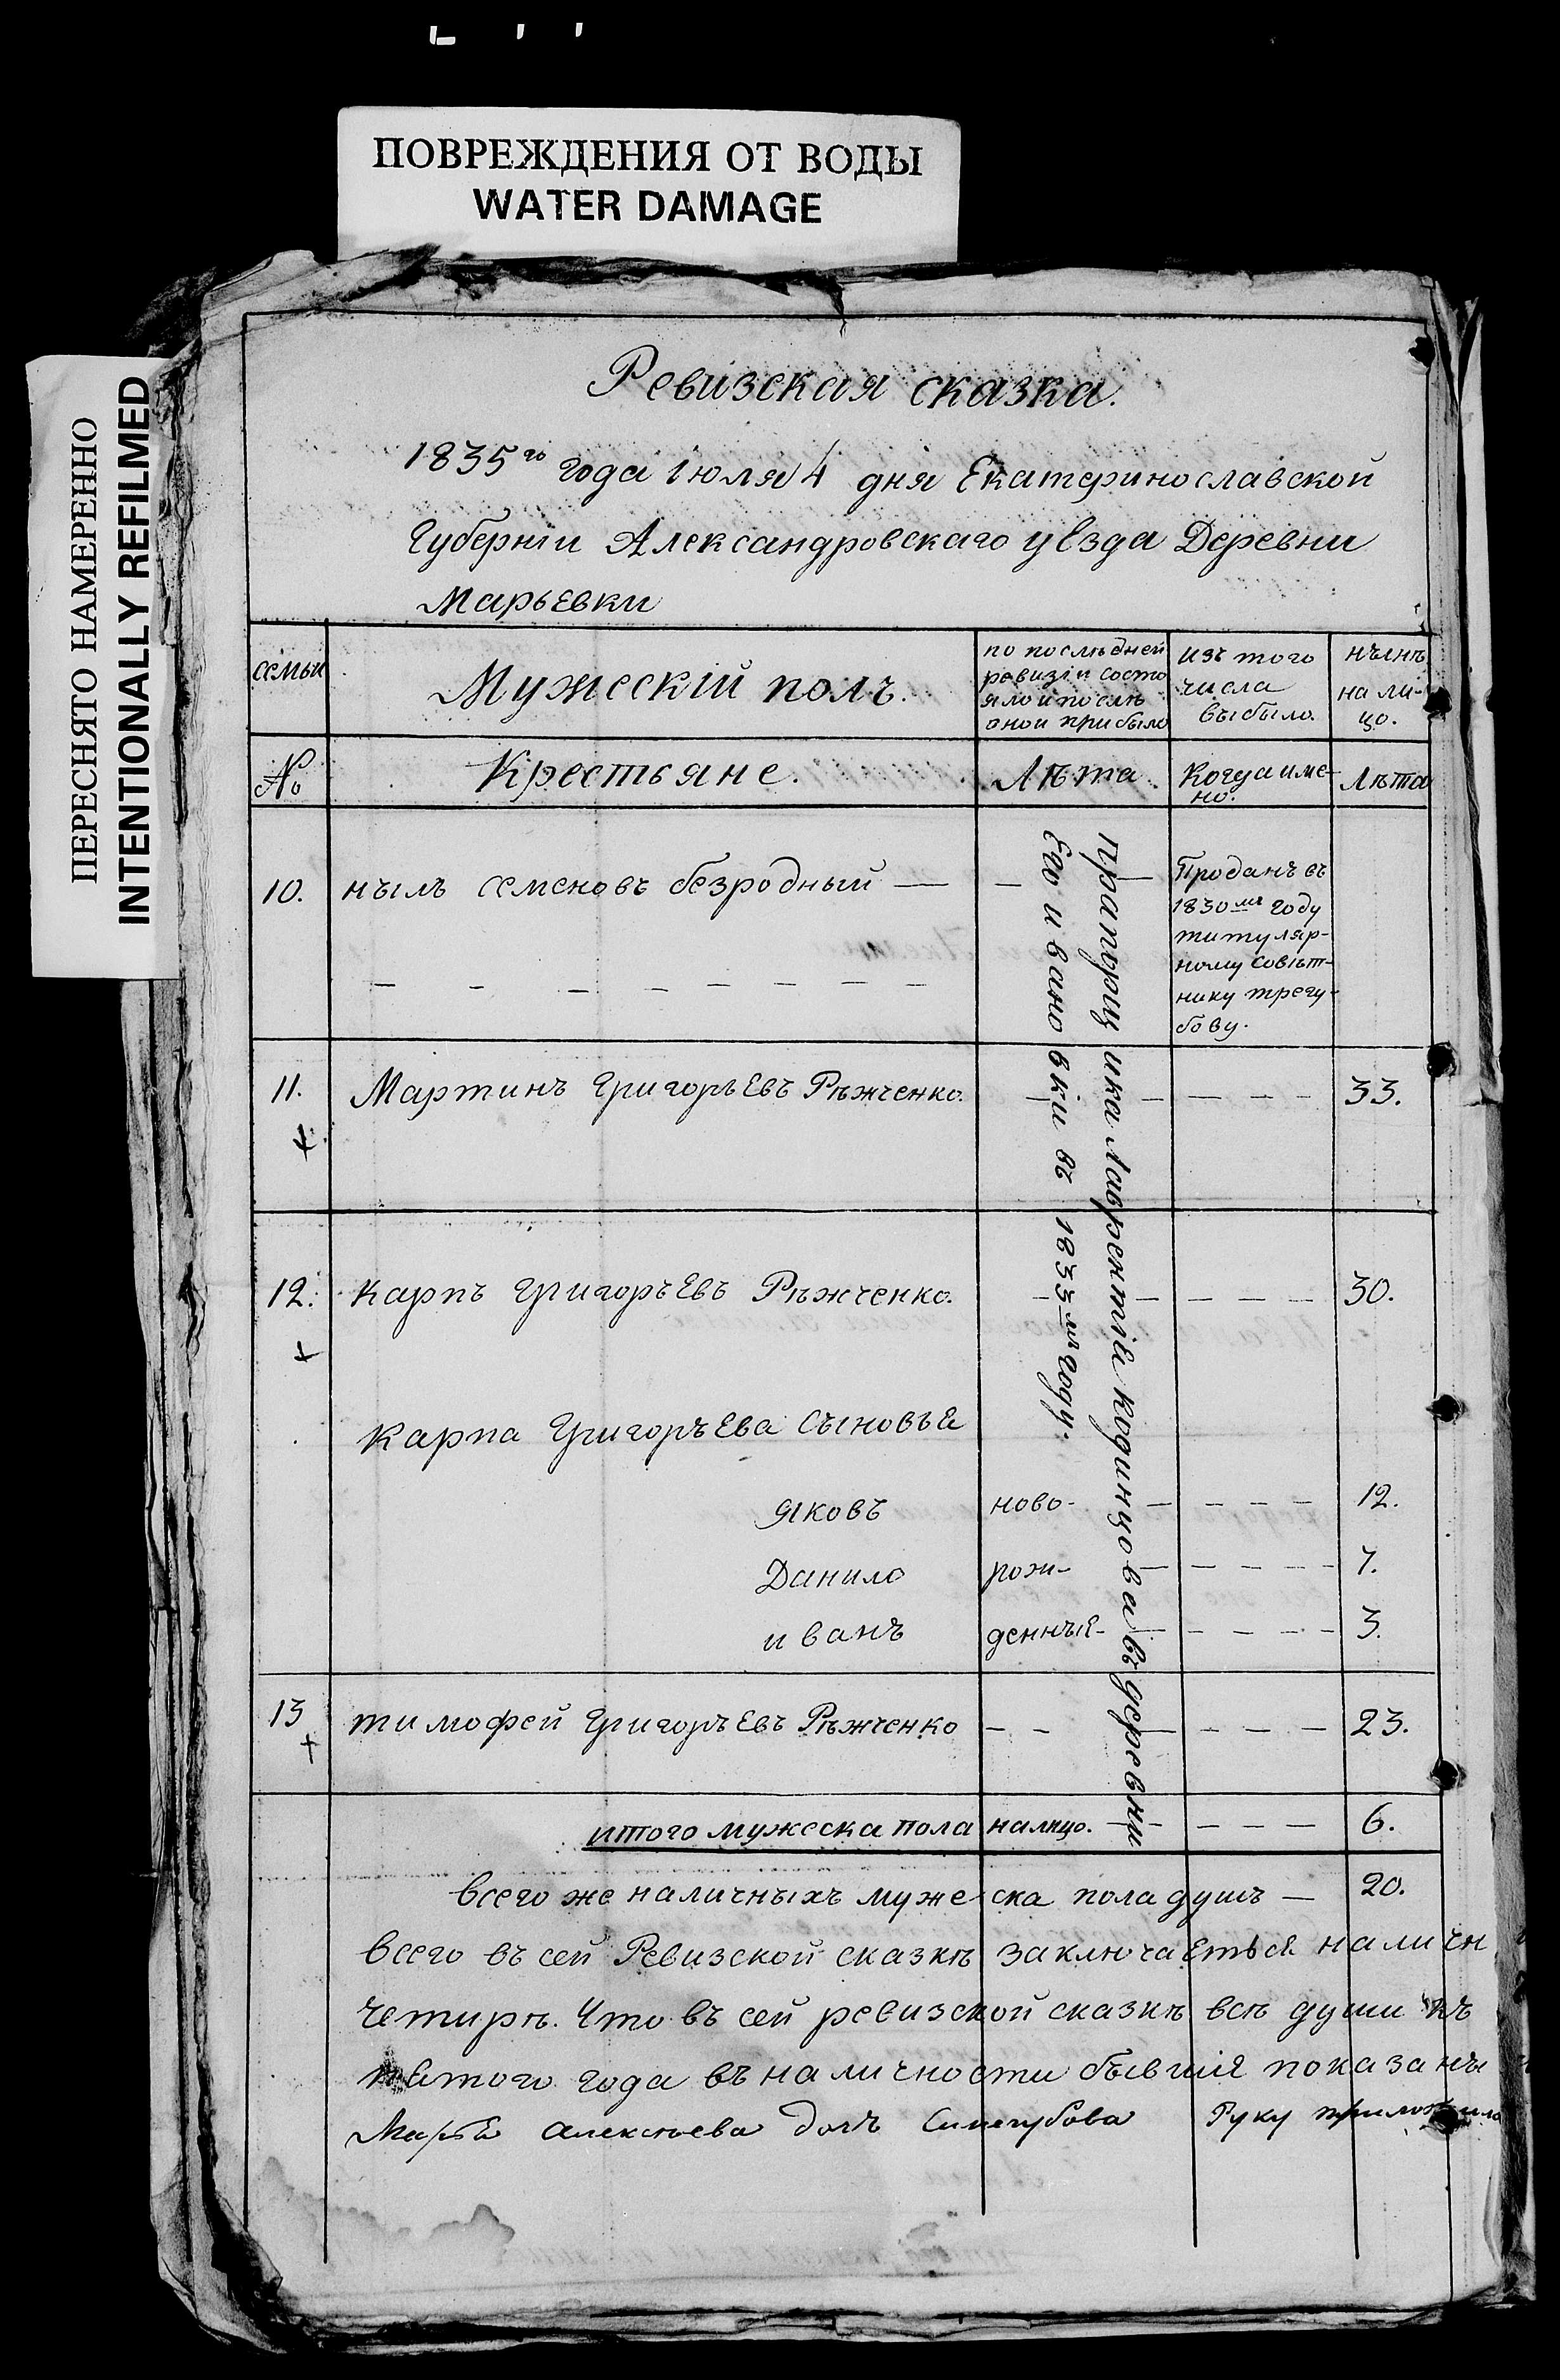 ПОВРЕЖДЕНИЯ ОТ ВОДЫ
WATER DAMAGE
ПЕРЕСНЯТО НАМЕРЕННО
INTENTIONALLY REFILMED
Ревизская сказка.
1835го года июля 4 дня Екатеринославской
Губерніи Александровскаго уезда Деревни
Марьевки
семьи
Мужескій полъ.
по послѣдней
ревизіи состо
яло и послѣ
оной прибыло
изъ того
числа
выбыло.
нынѣ
на ли-
цо.
№
Крестьяне.
Лѣта
Когда име-
но.
Лѣта
10. нылъ семеновъ безродный — —
Проданъ въ
1830мъ году
титуляр-
ному совѣт-
нику трегу-
бову.
11. Мартинъ Григорьевъ Рѣжченко. — — — — 33.
12. Карпъ Григорьевъ Рѣжченко. — — — — 30.
Карпа Григорьева Сыновья
Яковъ ново- — — — — 12.
Данило рож- — — — — 7.
иванъ денныя — — — — 3.
13 тимофей Григорьевъ Рѣжченко — — — — — 23.
Прапорщика Лаврентія Кодинцова въ деревни
Его ивановки въ 1833мъ году.
итого мужеска пола налицо. — — — — 6.
Всего же наличныхъ мужеска пола душъ — 20.
Всего въ сей Ревизской сказкѣ заключаеться наличн
четирѣ. Что въ сей ревизской сказкѣ всѣ души къ
натого года въ наличности бывшія показаны
Марья Алексѣева дочь Синегубова Руку приложила